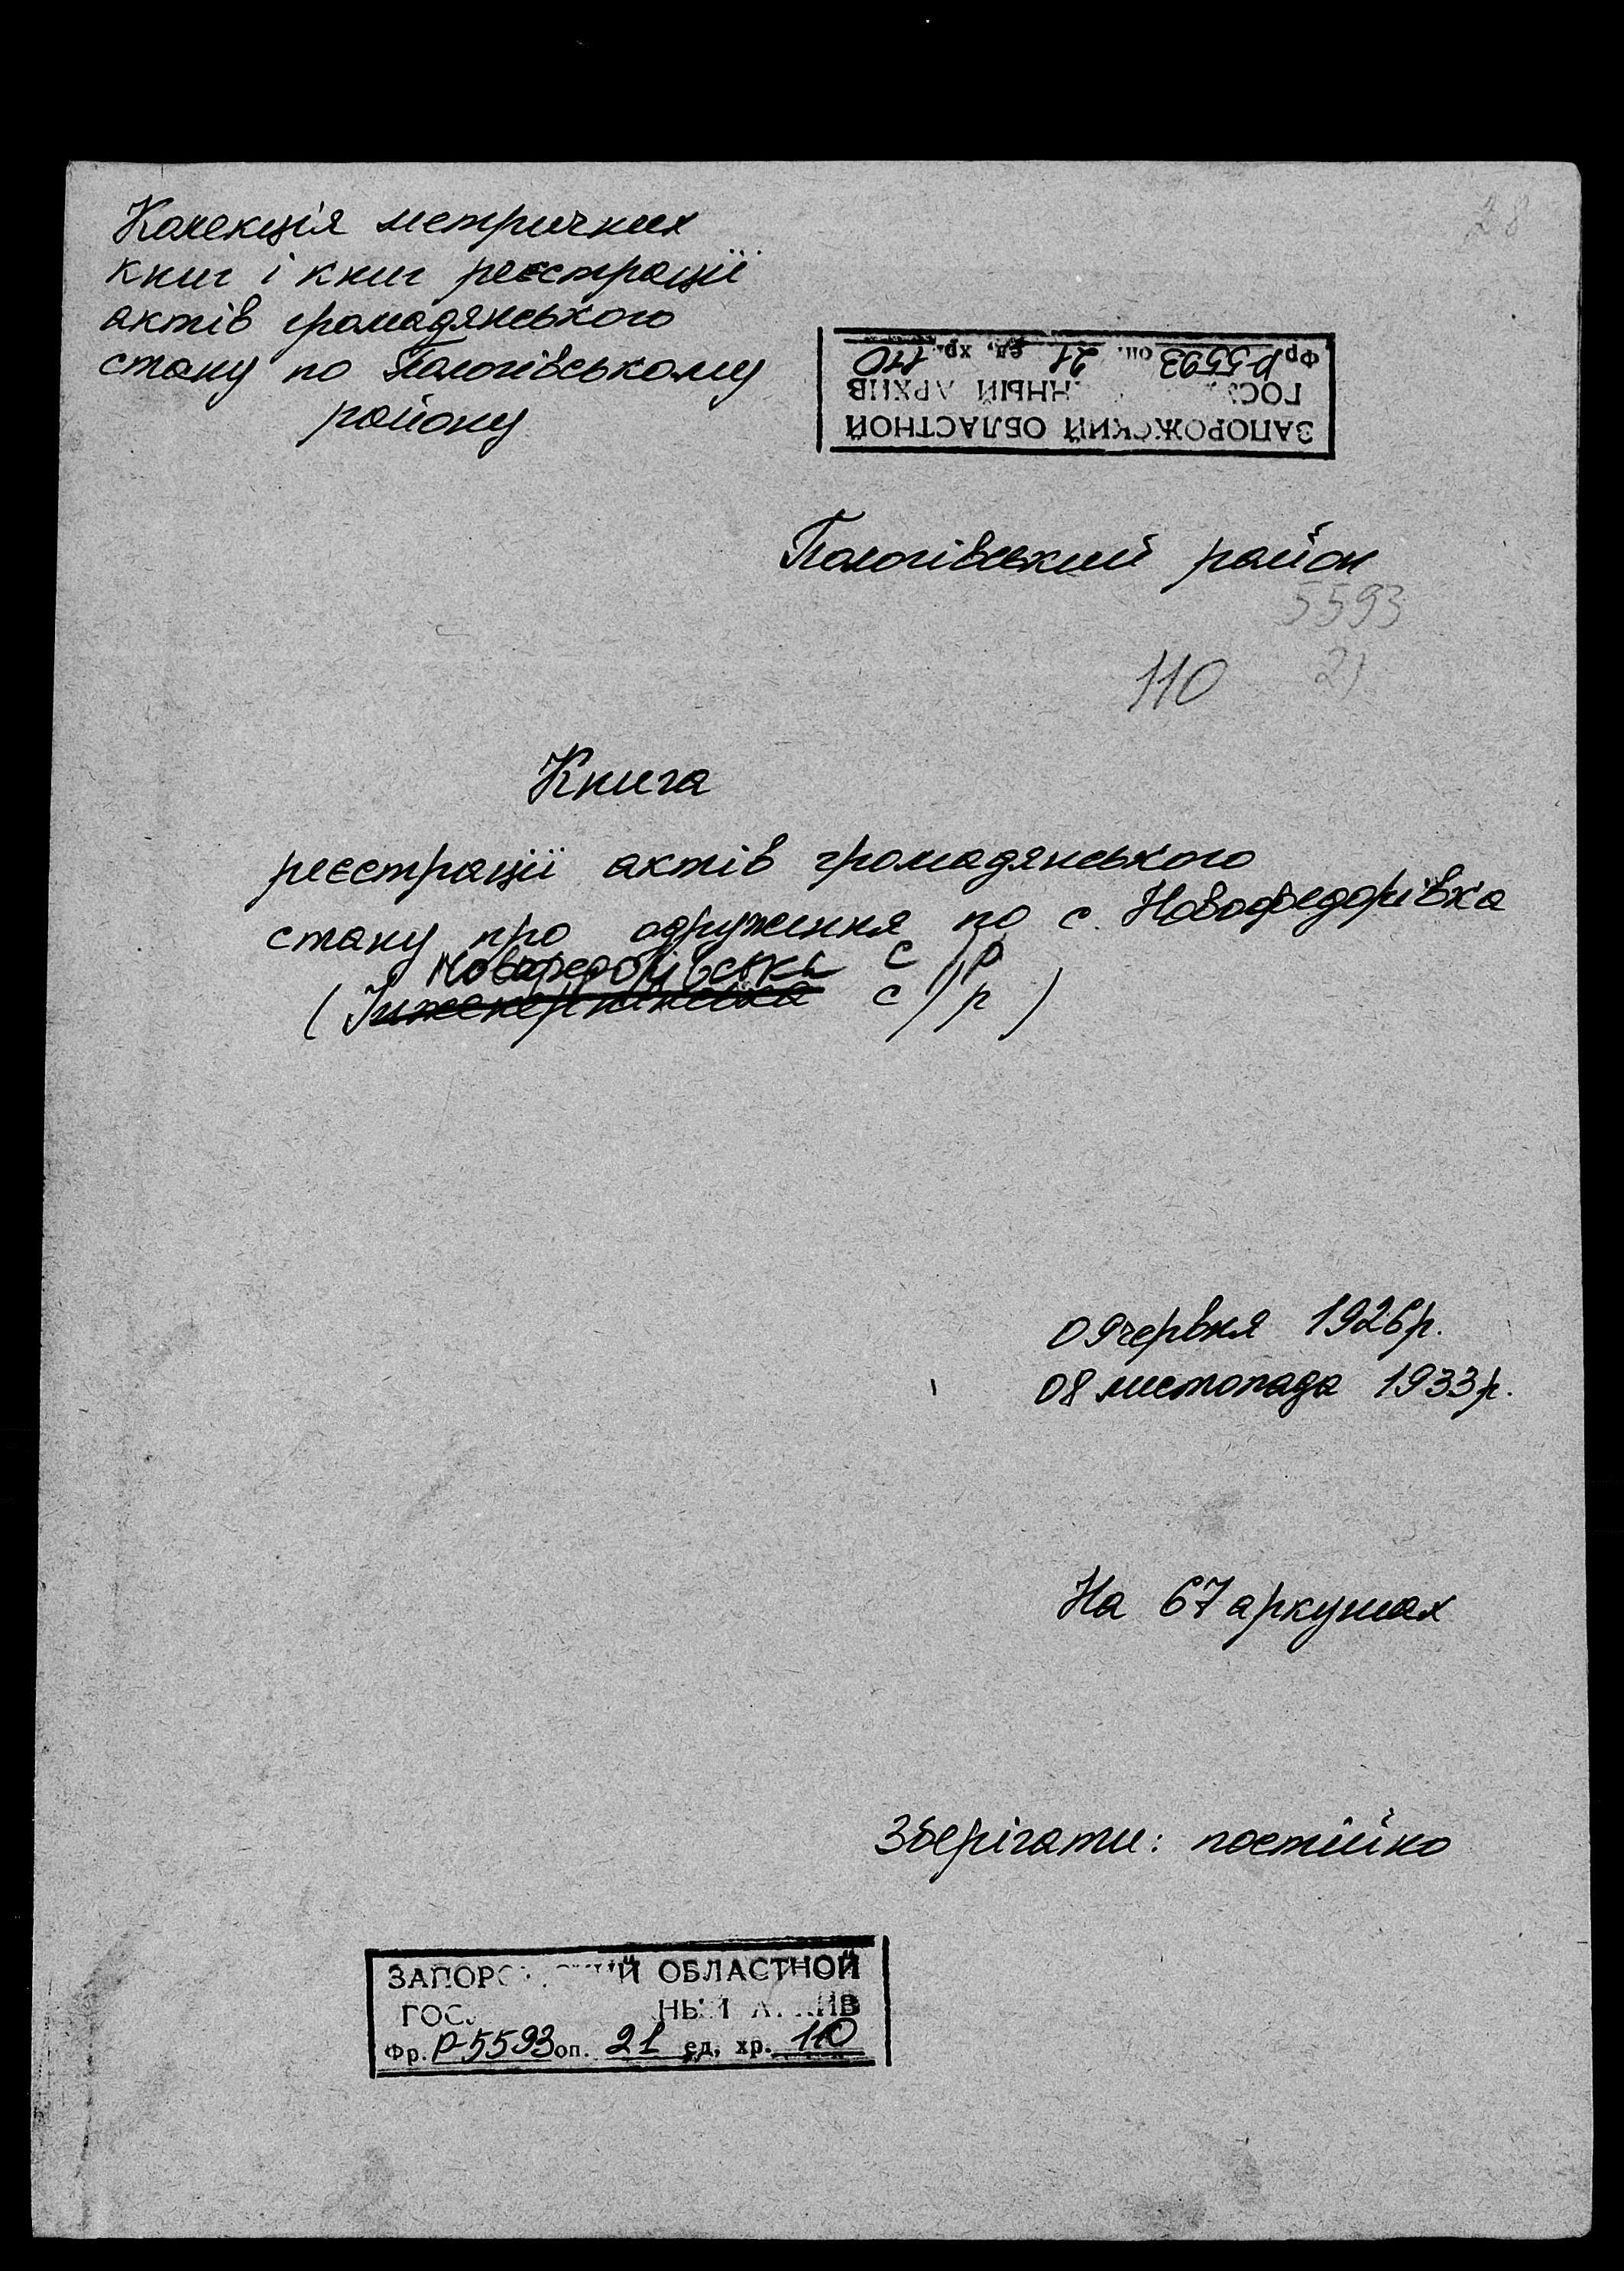 28
Колекція метричних
книг і книг реєстрації
актів громадянського
стану по Пологівському
району
ЗАПОРОЖСКИЙ ОБЛАСТНОЙ
АРХИВ
Фр. Р-5593 оп. 21 ед. хр. 110
Пологівський район
5593
110 21
Книга
реєстрації актів громадянського
стану про одруження по с. Новофедорівка
Новофедорівська с/р
( с/р)
09 червня 1926 р.
08 листопада 1933 р.
На 67 аркушах
Зберігати: постійно
ОБЛАСТНОЙ
Фр. Р-5593 оп. 21 ед. хр. 110